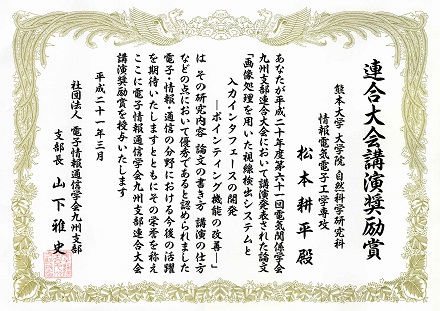 連合大会講演奨励賞
熊本大学 大学院 自然科学研究科
情報電気電子工学専攻
松本耕平殿
あなたが平成二十年度第六十一回電気関係学会
九州支部連合大会において講演発表された論文
「画像処理を用いた視線検出システムと
入力インタフェースの開発
―ポインティング機能の改善―」
は その研究内容 論文の書き方 講演の仕方
などの点において優秀であると認められました
電子・情報・通信の分野における今後の活躍
を期待いたしますとともにその栄誉を称え
ここに電子情報通信学会九州支部連合大会
講演奨励賞を授与いたします
平成二十一年三月
社団法人 電子情報通信学会九州支部
支部長 山下雅史